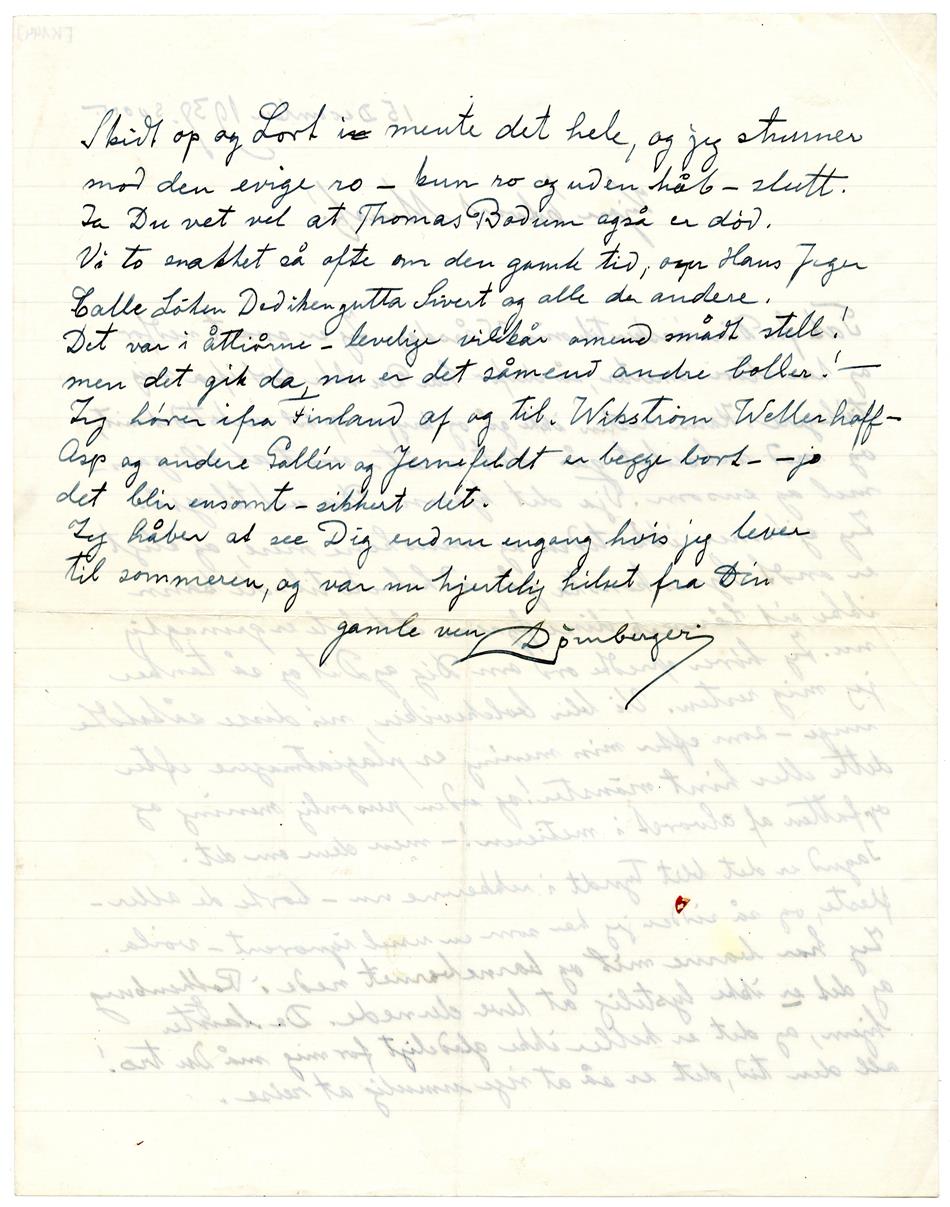 Skidt op og Lort i mente det hele, og jeg strunner
mod den evige ro – kun ro og uden håb – slutt.
Ja Du vet vel at Thomas Bodum også er død.
Vi to snakket så ofte om den gamle tid, Hans Jæger
Calle Løken Dedikengutta Sivert og alle de andre.
Det var i åttiårne – levelige vilkår omend smådt stell!
men det gik da, nu er det såmend andre boller! —
Jeg hører ifra Finland af og til. Wikstrøm Wellerhoff–
Asp og andre Gallén og Jernefeldt er begge bort – – jo
det blir ensomt – sikkert dét.
Jeg håber at see Dig endnu engang hvis jeg lever
til sommeren, og vær nu hjertelig hilset fra Din
gamle ven Dørnberger